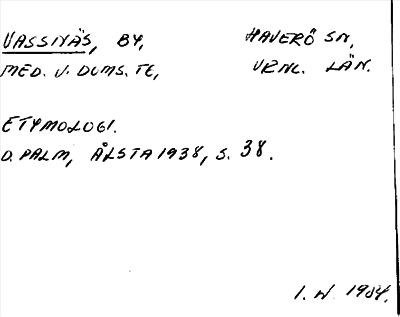 VASSNÄS, BY, HAVERÖ SN,
MED. V. DOMS. TE, VRNL. LÄN.
ETYMOLOGI.
D. PALM, ÅLSTA 1938, S. 38.
I. W 1984.